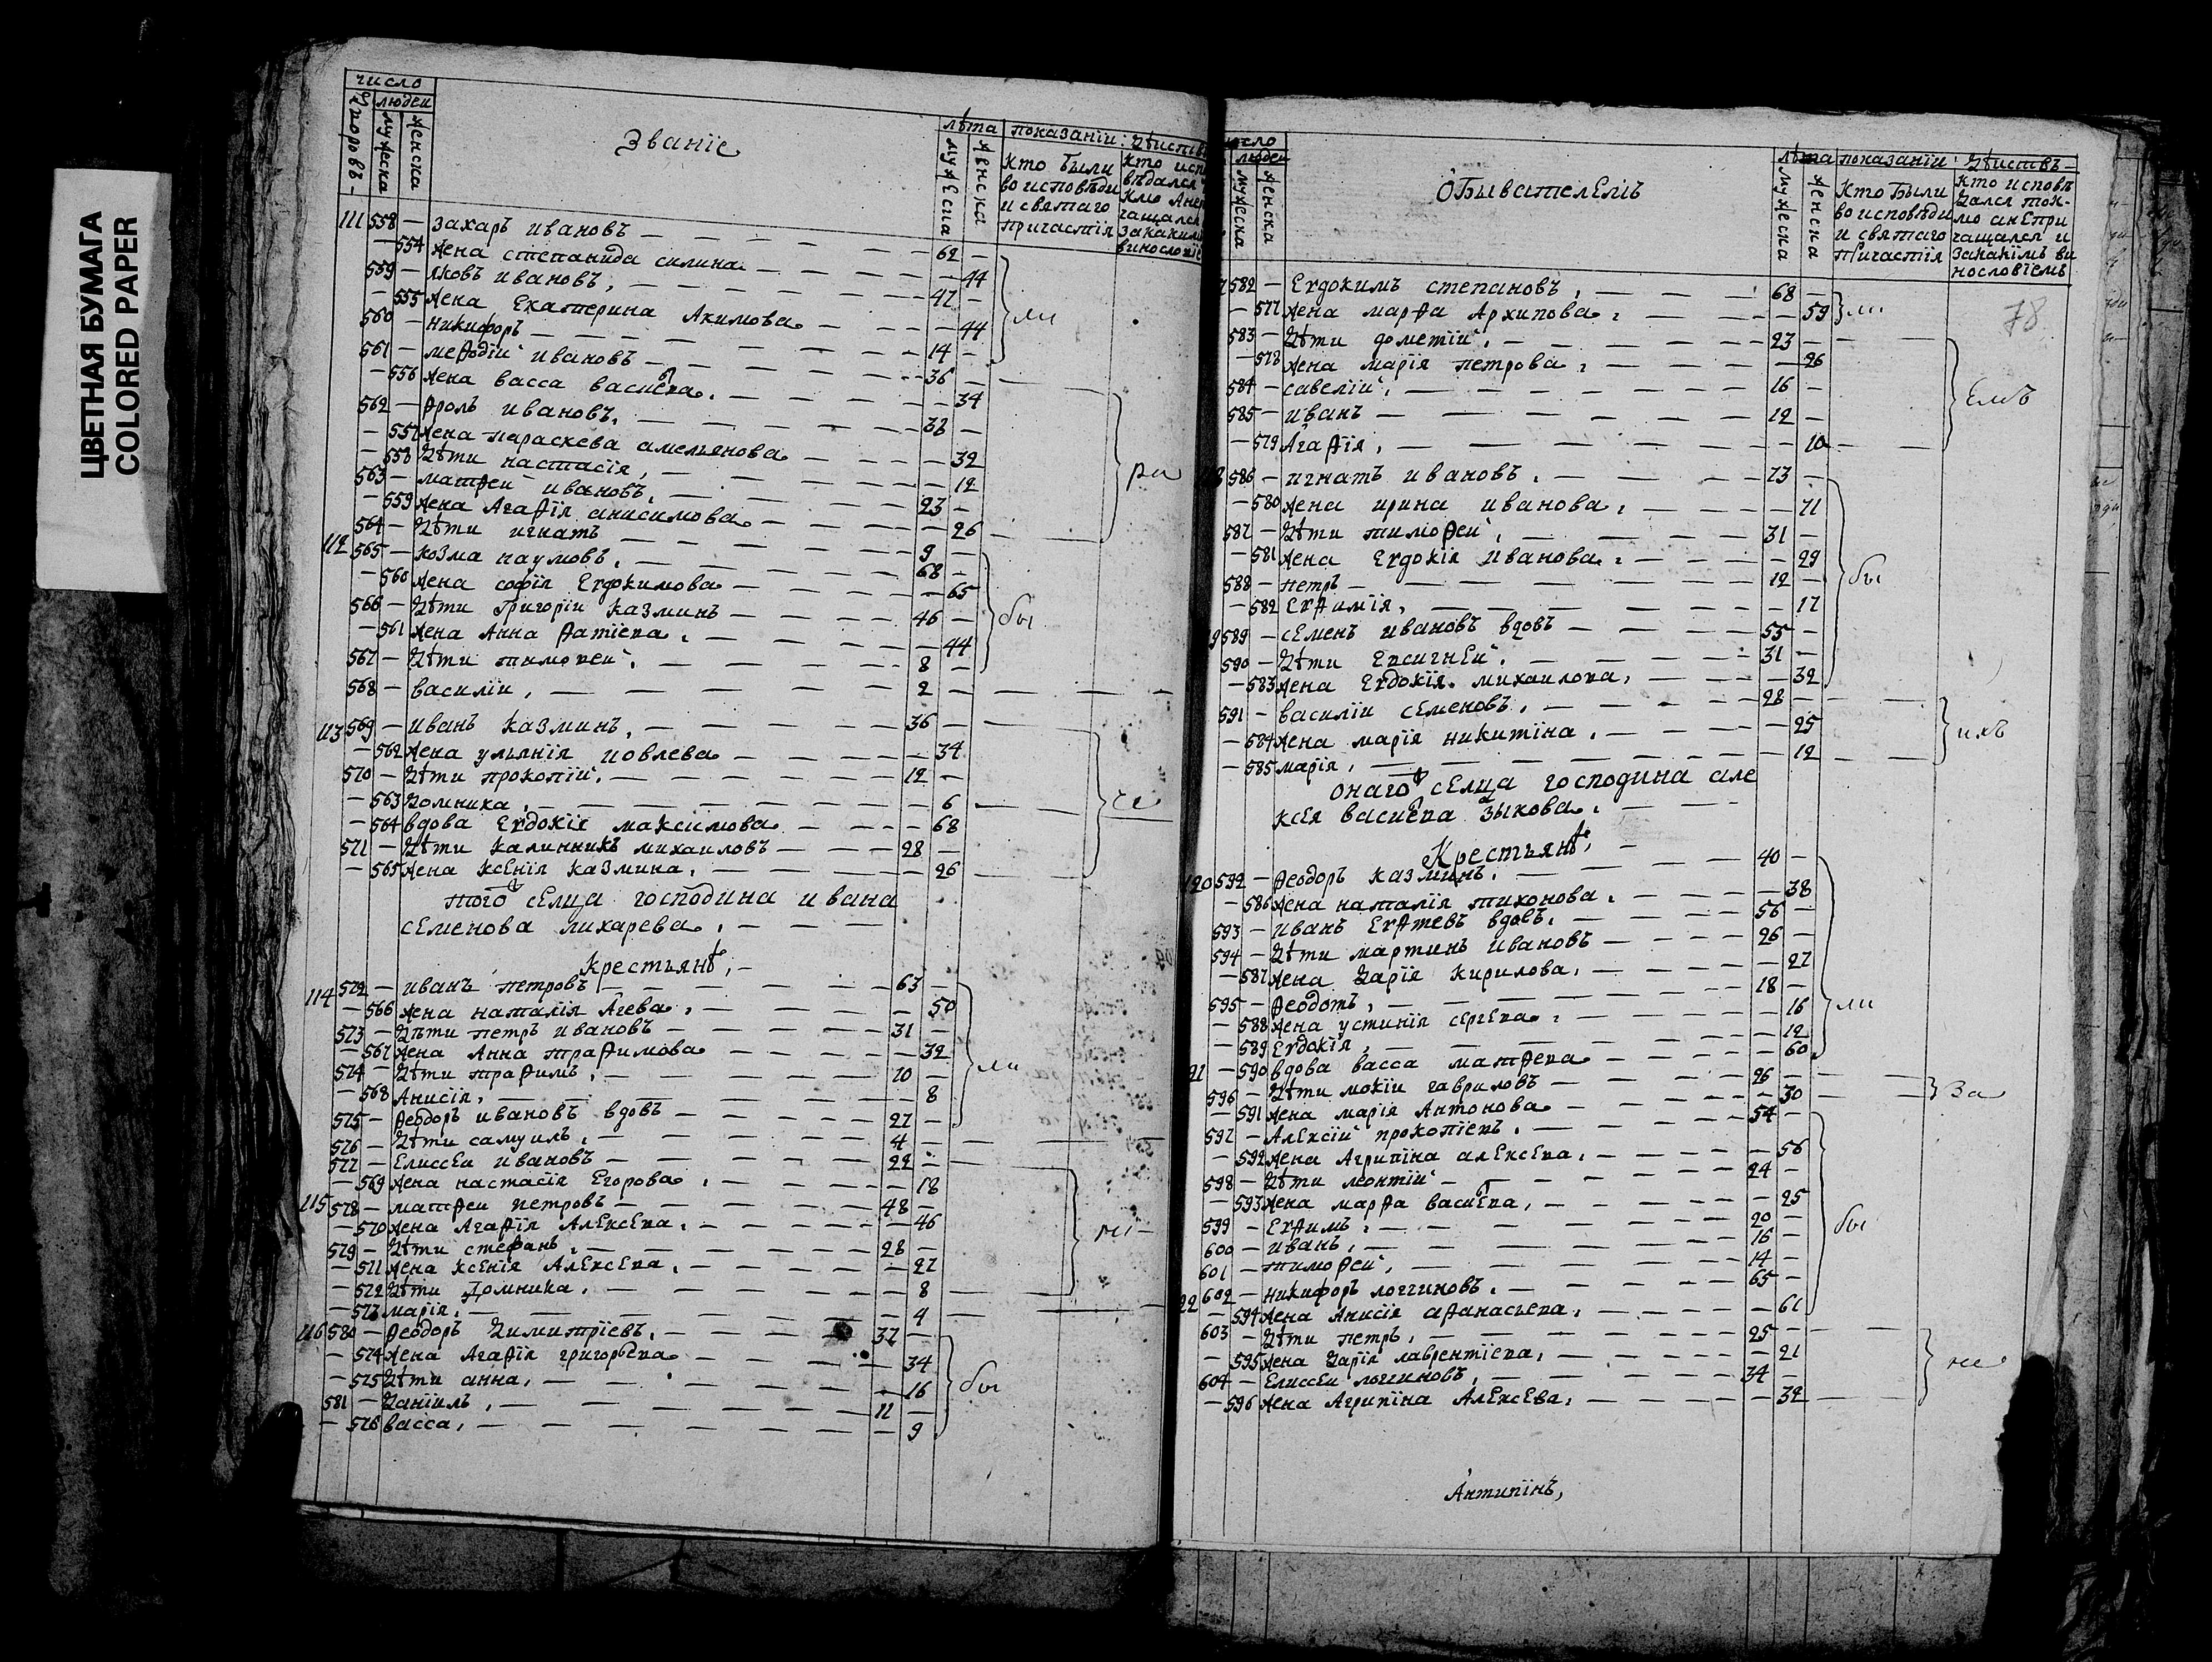 ЦВЕТНАЯ БУМАГА
COLORED PAPER
число
людеи
дворовъ
мужеска
женска
Званїе
лѣта
мужеска
женска
показанїи
Кто были во исповѣди и святаго причастїя
111 558 — захаръ ивановъ — 62
— 554 жена степанида силина — 44
559 — яковъ ивановъ, — 47
— 555 жена Екатерина Акимова — 44
560 — никифоръ — 14
561 — меѳодїй ивановъ — 36
— 556 жена васса васиева — 34
562 — ѳролъ ивановъ, — 32
— 557 жена параскева амельянова — 32
— 558 дѣти настасїя, — 12
563 — матѳеи ивановъ, — 23
— 559 жена Агаѳїя анисимова — 26
564 — дѣти игнатъ — 9
112 565 — козма наумовъ, — 68
— 560 жена софїя Евдокимова — 65
566 — дѣти григорїи казминъ — 46
— 561 жена Анна ѳатїева, — 44
567 — дѣти тимоѳеи, — 8
568 — василїи, — 2
113 569 — иванъ казминъ, — 36
— 562 жена ульянїя иовлева — 34
570 — дѣти прокопїй, — 12
— 563 домника, — 6
— 564 вдова Евдокїя максимова — 68
571 — дѣти калинникъ михаиловъ — 28
— 565 жена ксенїя казмина, — 26
того селца господина ивана
семенова лихарева,
крестьянѣ,
114 572 — иванъ петровъ — 63
— 566 жена наталїя Агева, — 50
573 — дѣти петръ ивановъ — 31
— 567 жена Анна траѳимова — 32
574 — дѣти траѳимъ, — 10
— 568 Анисїя, — 8
575 — ѳеодоръ ивановъ вдовъ — 27
576 — дѣти самуилъ, — 4
577 — Елиссеи ивановъ — 22
— 569 жена настасїя Егорова, — 18
115 578 — матѳеи петровъ — 48
— 570 жена Агаѳїя Алексева, — 46
579 — дѣти стефанъ, — 28
— 571 жена ксенїя Алексева, — 27
— 572 дѣти домника, — 8
— 573 марїя, — 4
116 580 — ѳеодоръ димитрїевъ, — 37
— 574 жена Агаѳїя григорьева — 34
— 575 дѣти анна, — 16
581 — данїилъ, — 11
— 576 васса, — 9
ли
ра
бы
че
ли
ни
бы
людеи
мужеска
женска
Обывателемъ
лѣта
мужеска
женска
показанїи дѣиствъ
Кто были во исповѣди и святаго причастїя
Кто исповѣдался токмо анепричащался и заканимъ винословїемъ
78
582 — Евдокимъ степановъ, — 68
— 577 жена марѳа Архипова, — 59
583 — дѣти дометїй, — 23
— 578 жена марїя петрова, — 26
584 — савелїй, — 16
585 — иванъ — 12
— 579 Агаѳїя, — 10
586 — игнатъ ивановъ, — 73
— 580 жена ирина иванова, — 71
587 — дѣти тимоѳеи, — 31
— 581 жена Евдокїя иванова, — 29
588 — петръ — 12
— 582 Евѳимїя, — 17
589 — семенъ ивановъ вдовъ — 55
590 — дѣти Евсигнеи, — 31
— 583 жена Евдокїя михаилова, — 32
591 — василїи семеновъ, — 28
— 584 жена марїя никитїна, — 25
— 585 марїя, — 12
онаго селца господина але
ксея васиева зыкова,
Крестьянѣ,
120 592 — ѳеодоръ казминъ, — 40
— 586 жена наталїя тихонова, — 38
593 — иванъ Евѳтевъ вдовъ, — 56
594 — дѣти мартинъ ивановъ — 26
— 587 жена дарїя кирилова, — 27
595 — ѳеодотъ, — 18
— 588 жена устинїя сергева, — 16
— 589 Евдокїя, — 12
21 — 590 вдова васса матѳева — 60
596 — дѣти мокїи гавриловъ — 26
— 591 жена марїя Антонова — 30
597 — Алексїй прокопїевъ, — 54
— 592 жена Агрипїна алексева, — 56
598 — дѣти леонтїй — 24
— 593 жена марѳа васиева, — 25
599 — Евѳимъ, — 20
600 — иванъ, — 16
601 — тимоѳеи, — 14
22 602 — никифоръ логгиновъ, — 65
— 594 жена Анисїя аѳанасьева, — 61
603 — дѣти петръ, — 25
— 595 жена дарїя лаврентїева, — 21
604 — Елиссеи логгиновъ, — 34
— 596 жена Агрипїна Алексева, — 32
ли
Емъ
бы
ихъ
ли
За
бы
не
Антипїнъ,